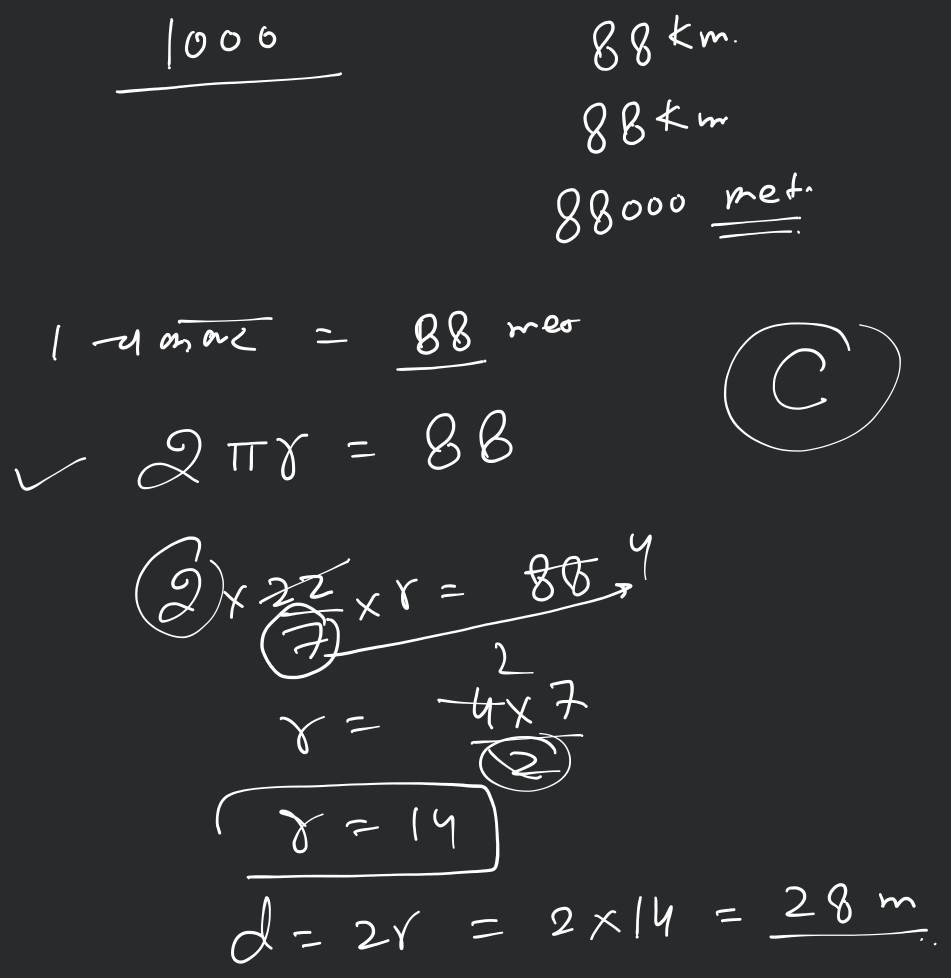 1000
88 km.
88 km
88000 met.
1 = 88
2πr = 88
C
2 × 22/7 × r = 88 4
2
r = 4×7/2
r = 14
d = 2r = 2×14 = 28 m